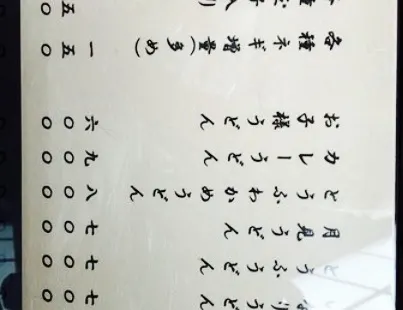 うどん 七〇〇
とうふうどん 七〇〇
月見うどん 七〇〇
とうふわかめうどん 八〇〇
カレーうどん 九〇〇
お子様うどん 六〇〇
各種ネギ増量(多め) 一五〇
五〇